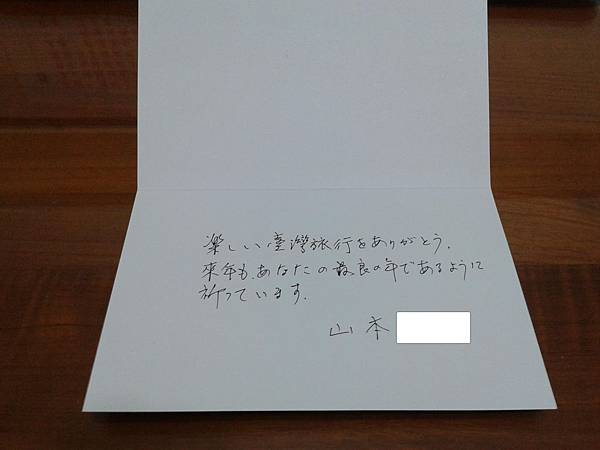 楽しい臺灣旅行をありがとう.
來年も、あなたの最良の年であるように
祈っています.
山本